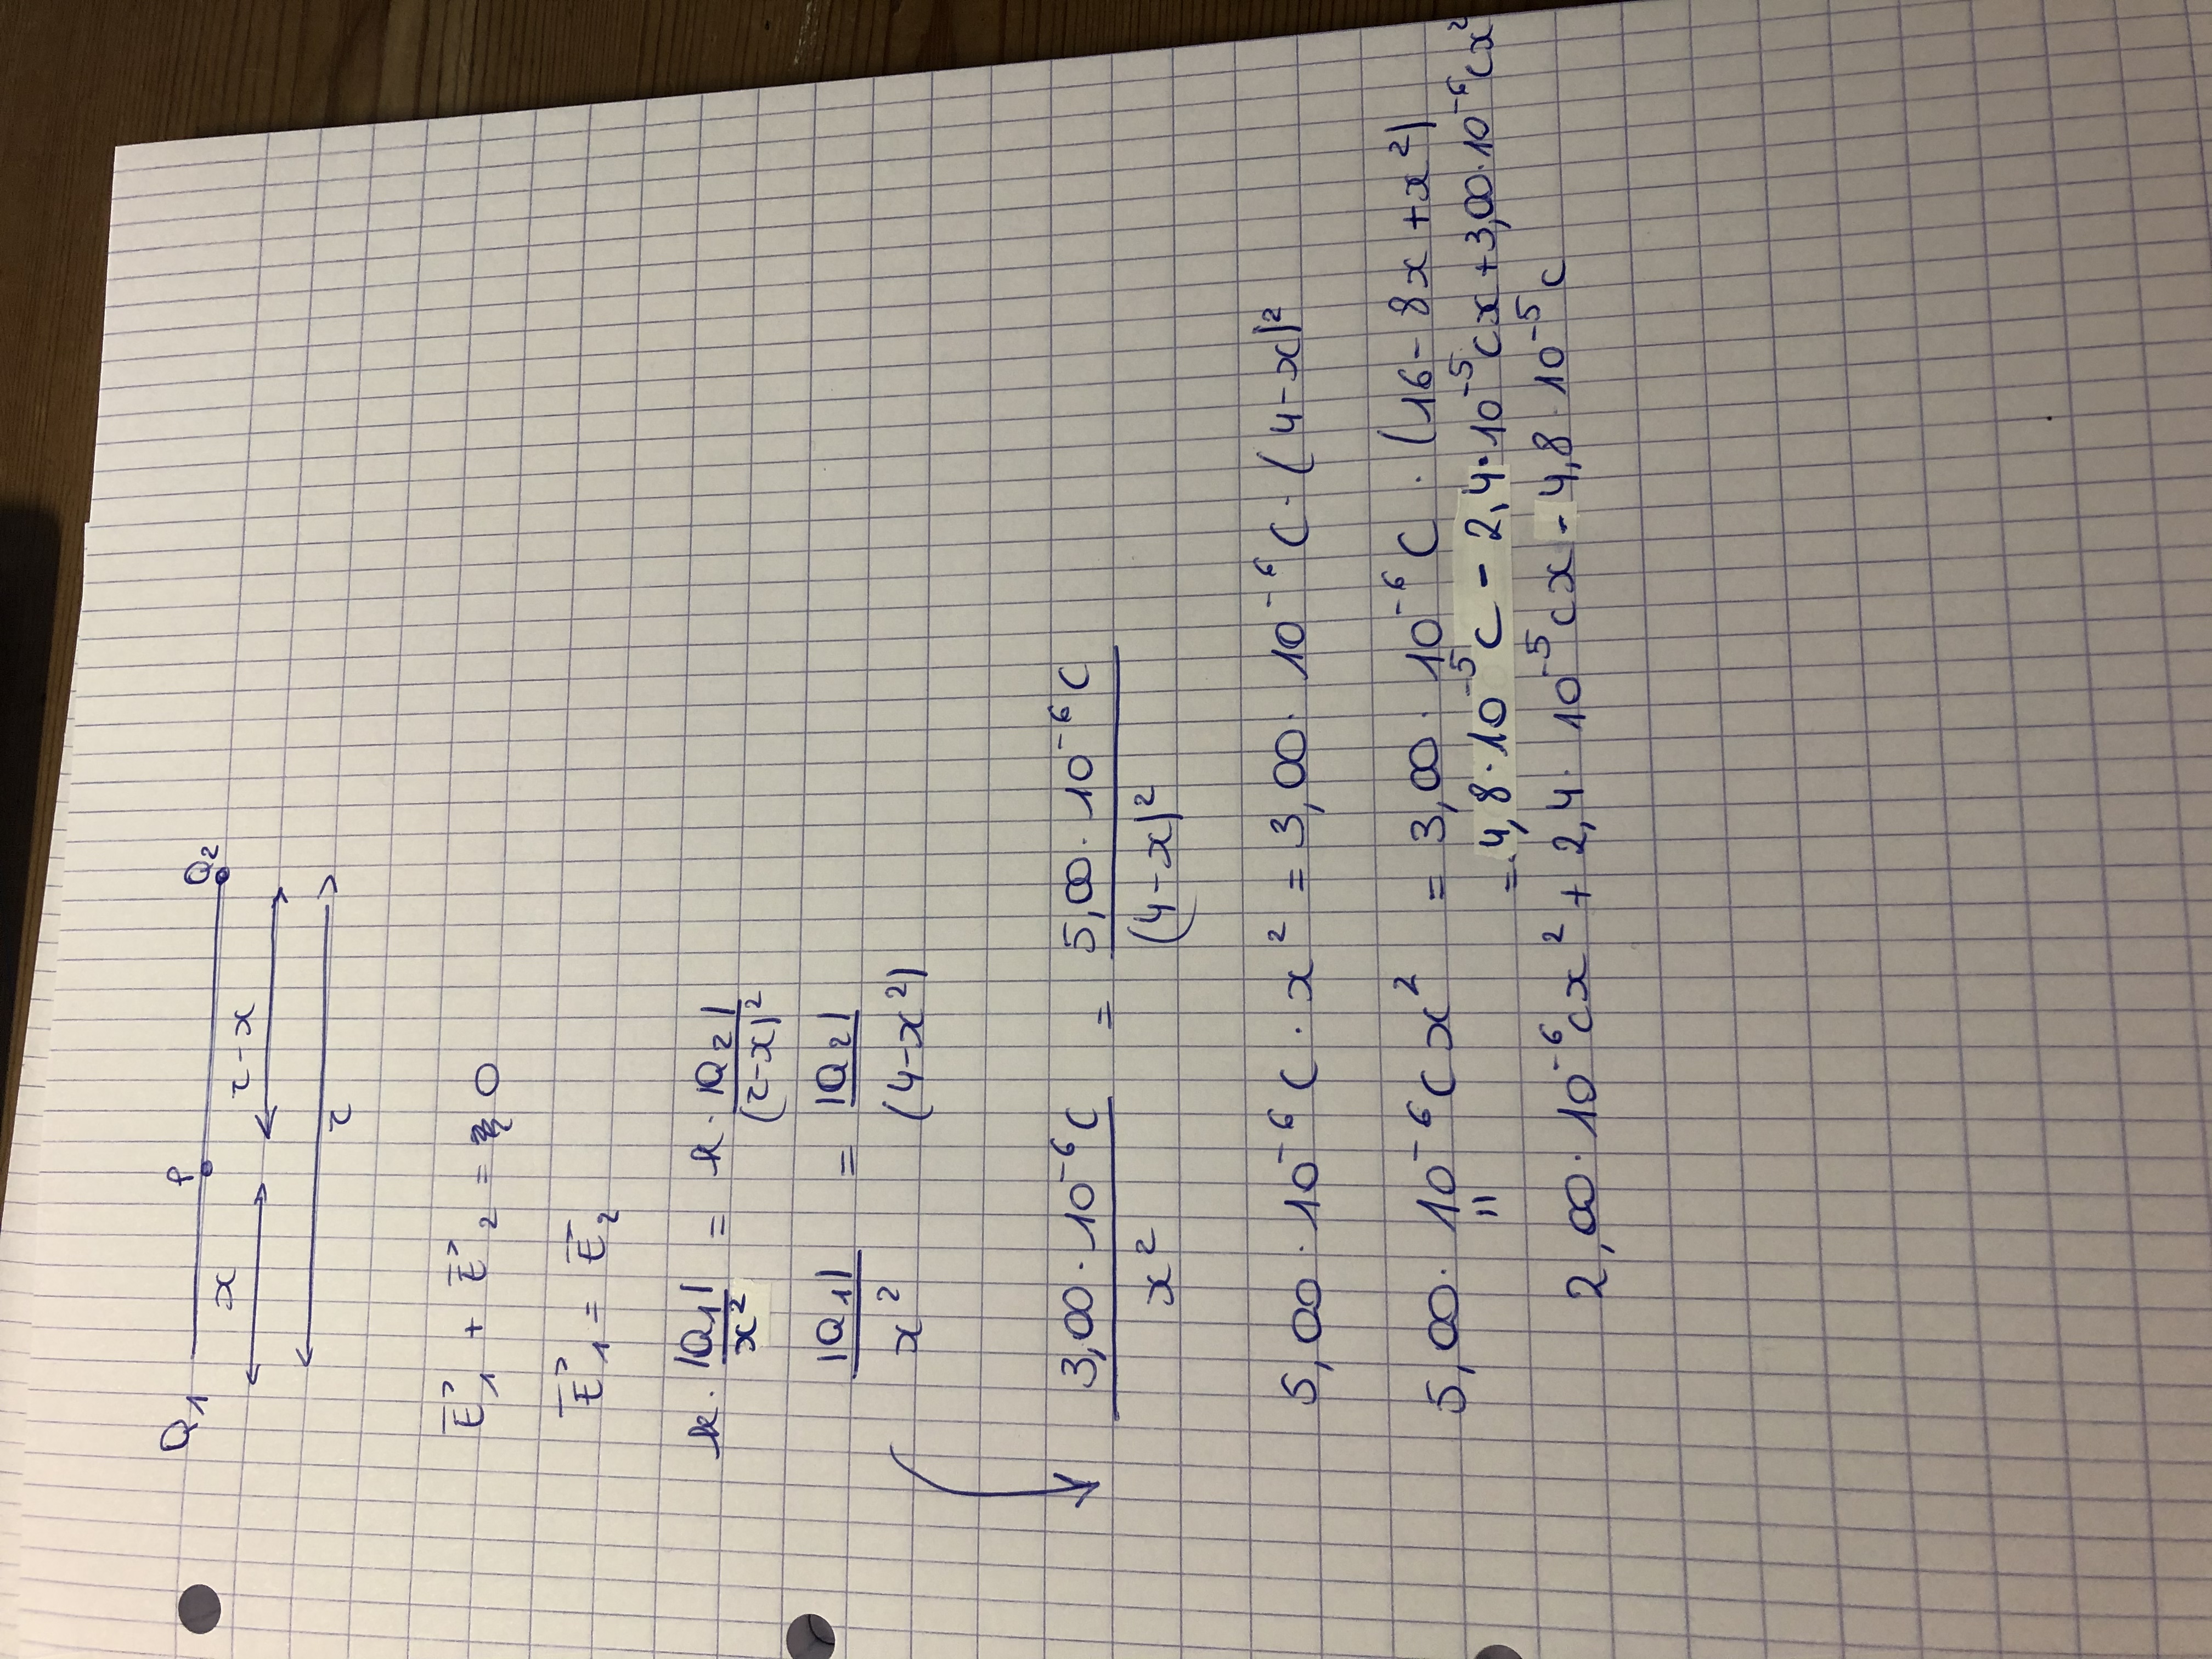 Q₁ P Q₂
x r-x
r
E⃗₁ + E⃗₂ = 0
E⃗₁ = E⃗₂
k · |Q₁|/x² = k · |Q₂|/(r-x)²
|Q₁|/x² = |Q₂|/(4-x²)
3,00 · 10⁻⁶ C/x² = 5,00 · 10⁻⁶ C/(4-x)²
5,00 · 10⁻⁶ C · x² = 3,00 · 10⁻⁶ C · (4-x)²
5,00 · 10⁻⁶ C x² = 3,00 · 10⁻⁶ C · (16 - 8x + x²)
" = 4,8 · 10⁻⁵ C - 2,4 · 10⁻⁵ Cx + 3,00 · 10⁻⁶ Cx²
2,00 · 10⁻⁶ Cx² + 2,4 · 10⁻⁵ Cx - 4,8 · 10⁻⁵ C